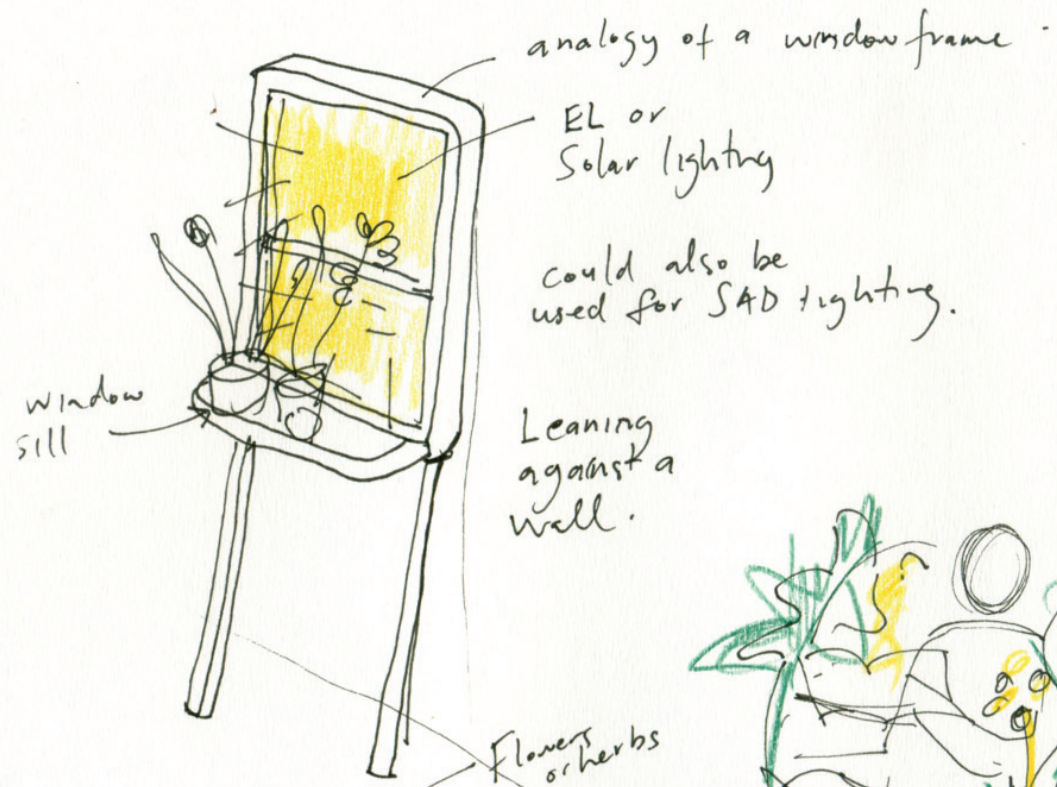 analogy of a window frame
EL or
Solar lighting
could also be
used for SAD lighting.
window
sill
Leaning
against a
wall.
Flowers
or herbs